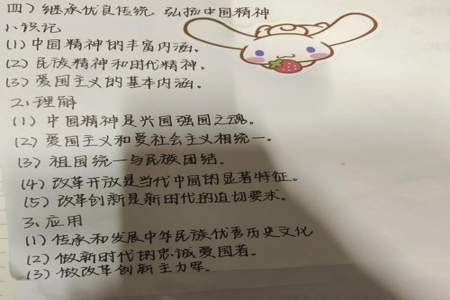 四）继承优良传统 弘扬中国精神
1、识记
(1) 中国精神的丰富内涵。
(2) 民族精神和时代精神。
(3) 爱国主义的基本内涵。
2、理解
(1) 中国精神是兴国强国之魂。
(2) 爱国主义和爱社会主义相统一。
(3) 祖国统一与民族团结。
(4) 改革开放是当代中国的显著特征。
(5) 改革创新是新时代的迫切要求。
3、应用
(1) 传承和发展中华民族优秀历史文化
(2) 做新时代的忠诚爱国者。
(3) 做改革创新主力军。